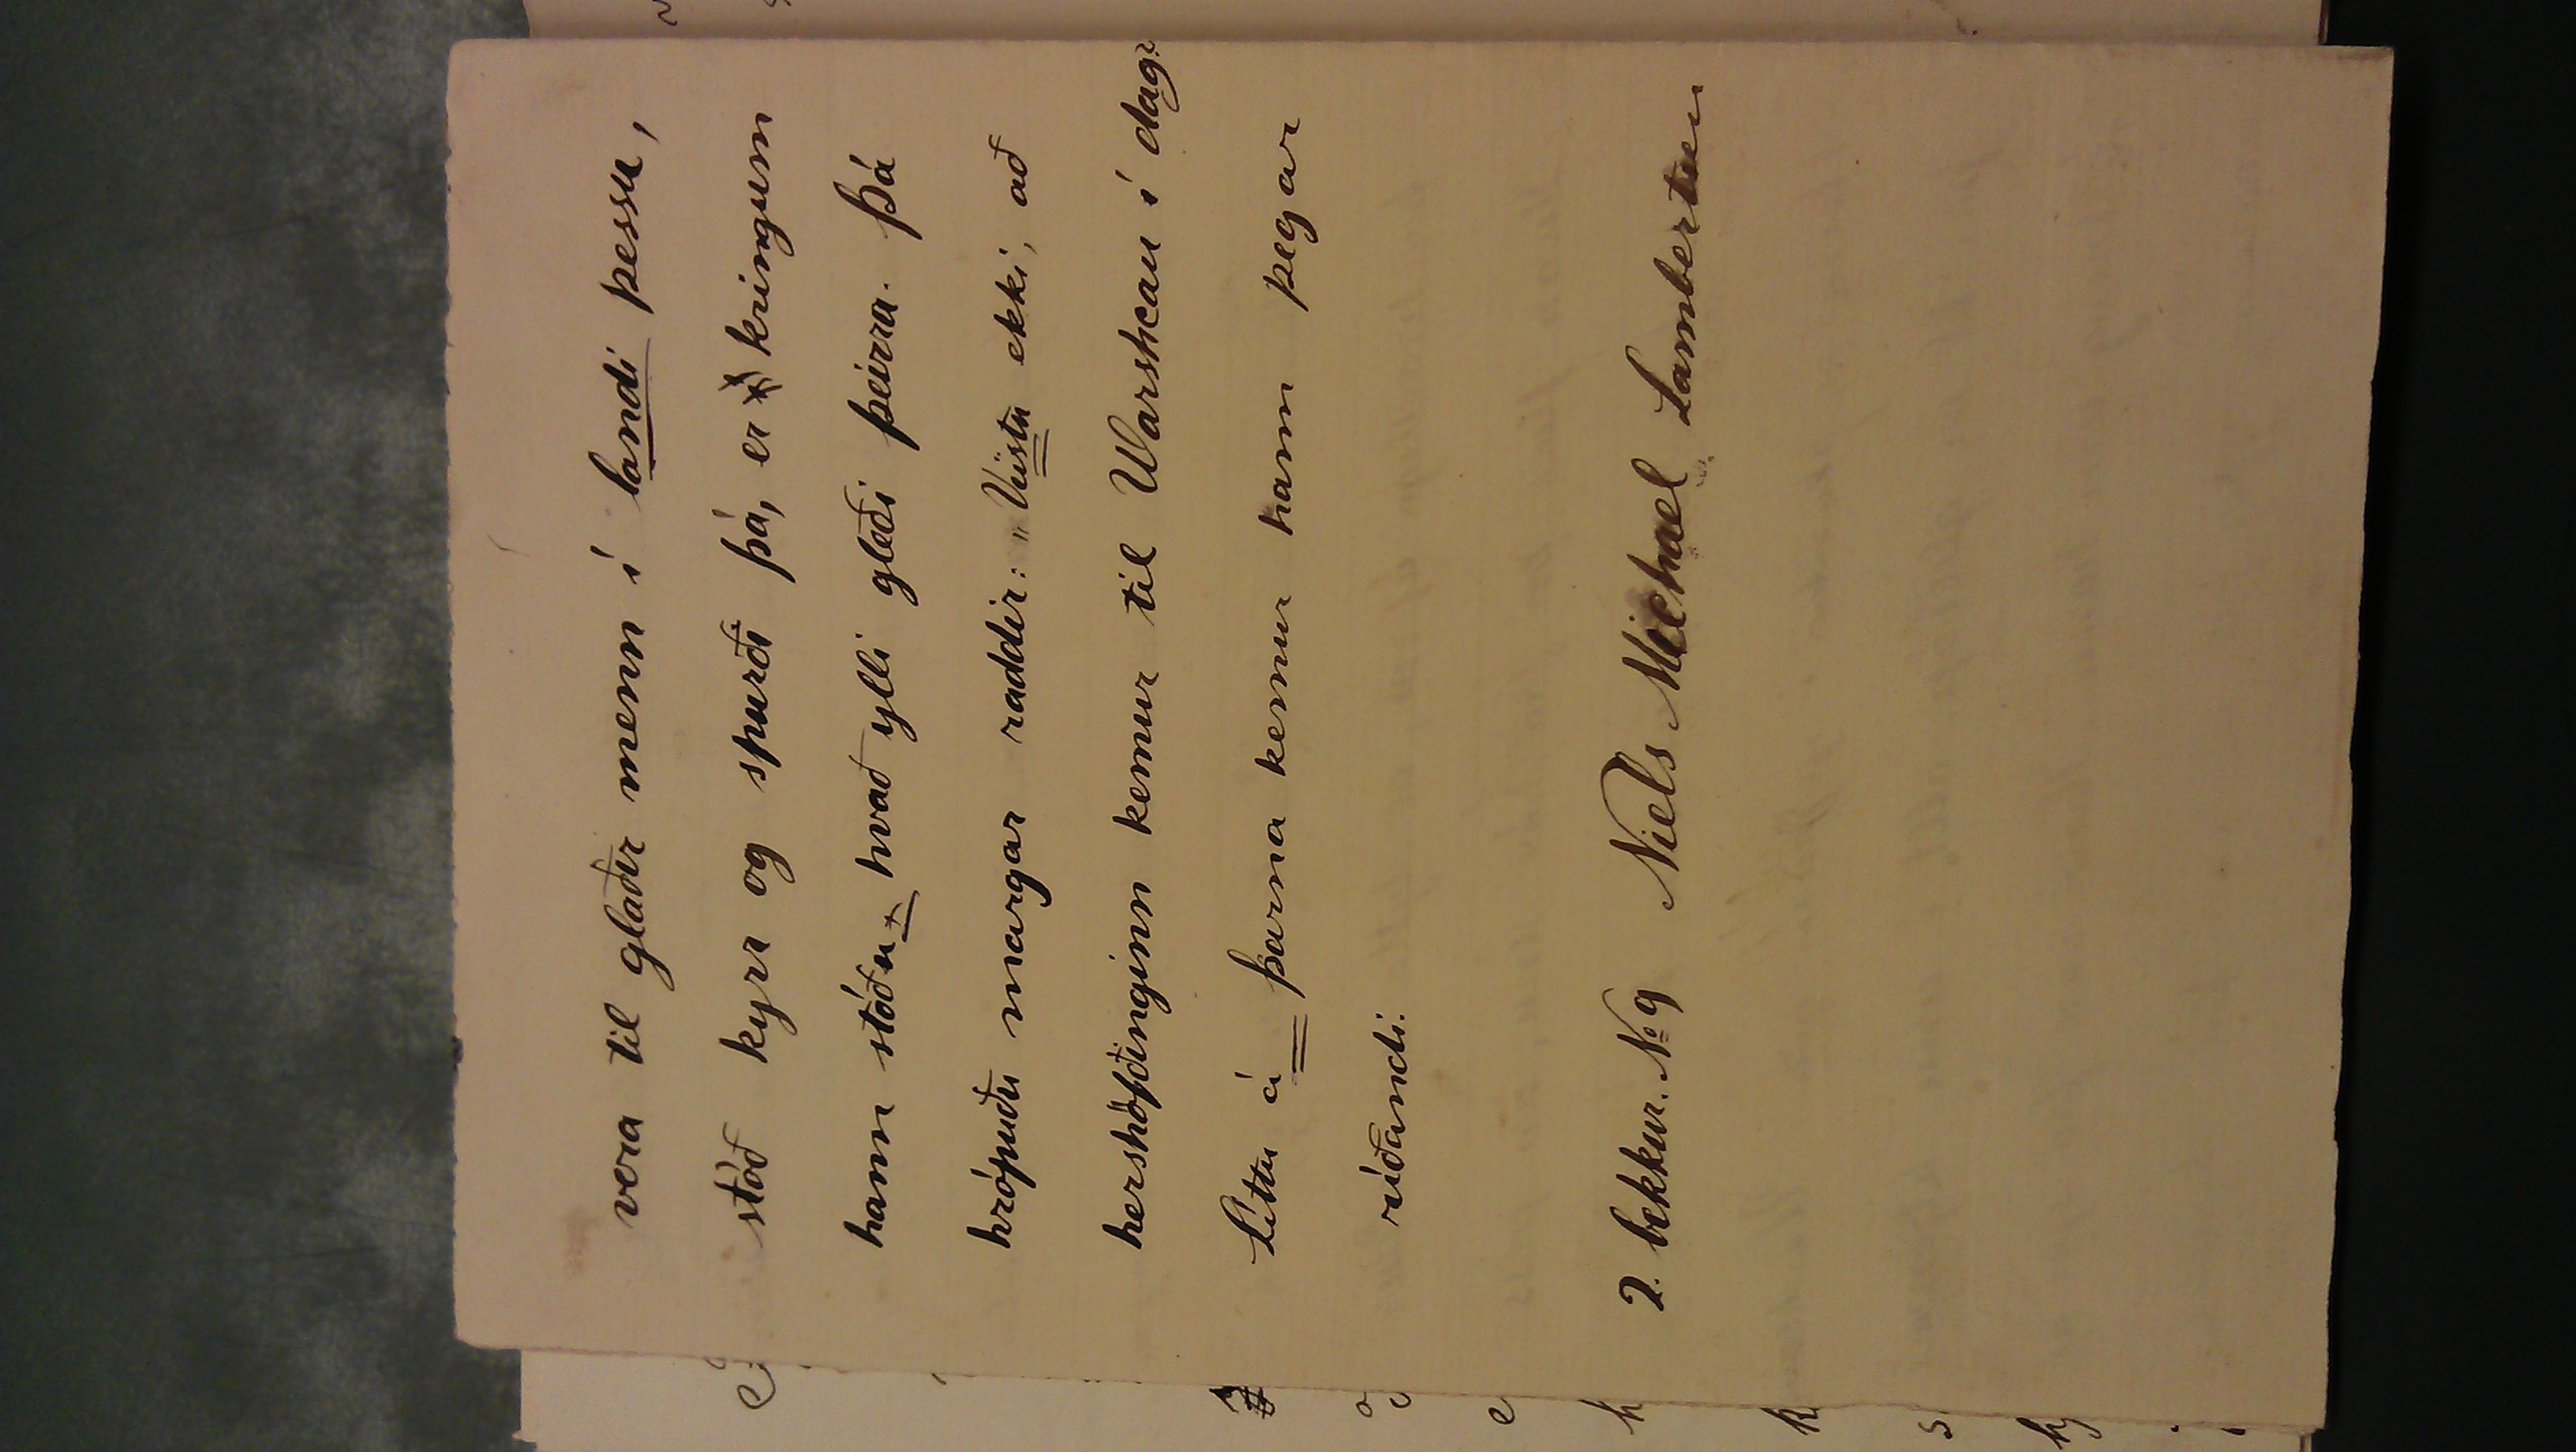 vera til glaðir menn í landi þessu,
stóð kyrr og spurði þá, er kringum
hann stóðu hvað ylli gleði þeirra. Þá
hrópuðu margar raddir: „Veistu ekki, að
hershöfðinginn kemur til Warshcau í dag?
Líttu á þarna kemur hann þegar
ríðandi.
2. bekkur. No 9 Niels Michael Lambertsen